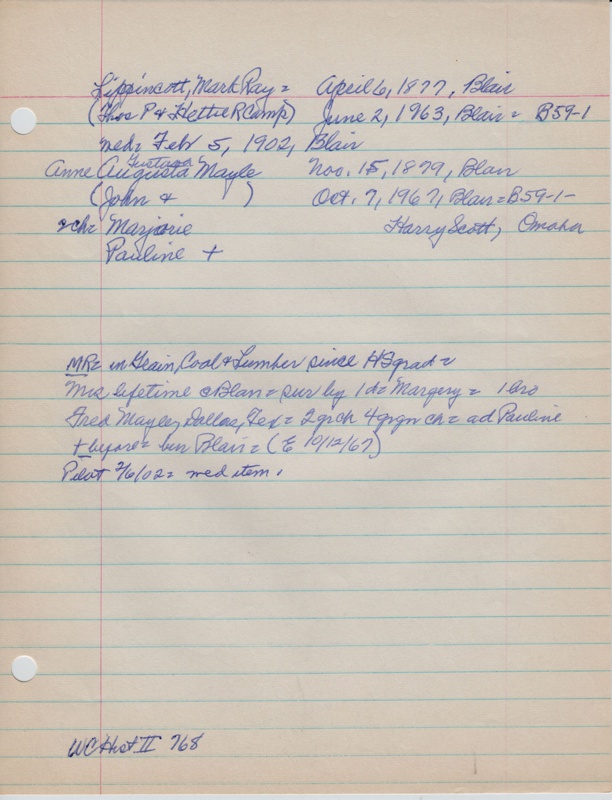 Lippincott, Mark Ray = April 6, 1877, Blair
(Thos P & Hettie R Camp) June 2, 1963, Blair = B59-1
med = Feb 5, 1902, Blair
Gustava
Anne Augusta Mayle Nov. 15, 1879, Blair
(John & ) Oct. 7, 1967, Blair = B59-1-
2ch = Marjorie Harry Scott, Omaha
Pauline +
MR = in Grain, Coal & Lumber since HS grad =
Mrs lifetime c Blair = sur by 1 d = Margery = 1 bro
Fred Mayle, Dallas, Tex = 2 grch 4 grgr ch = ad Pauline
+ before = bur Blair = (E 10/12/67)
Pilot 2/6/02 = med item.
WC Hist II 768